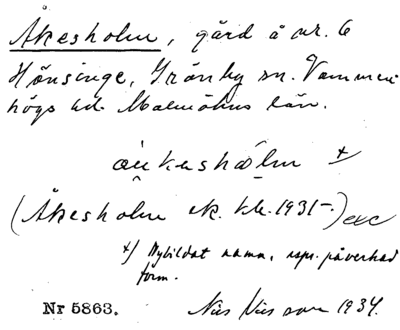 Åkesholm, gård å nr. 6
Hönsinge, Grönby sn. Vemmen-
högs hd. Malmöhus län.
åukesholm x/
(Åkesholm ek. kb. 1931-.) exc
x/ Nybildat namn, resp. påverkad
form.
Nr 5863. Nils Nilsson 1934.